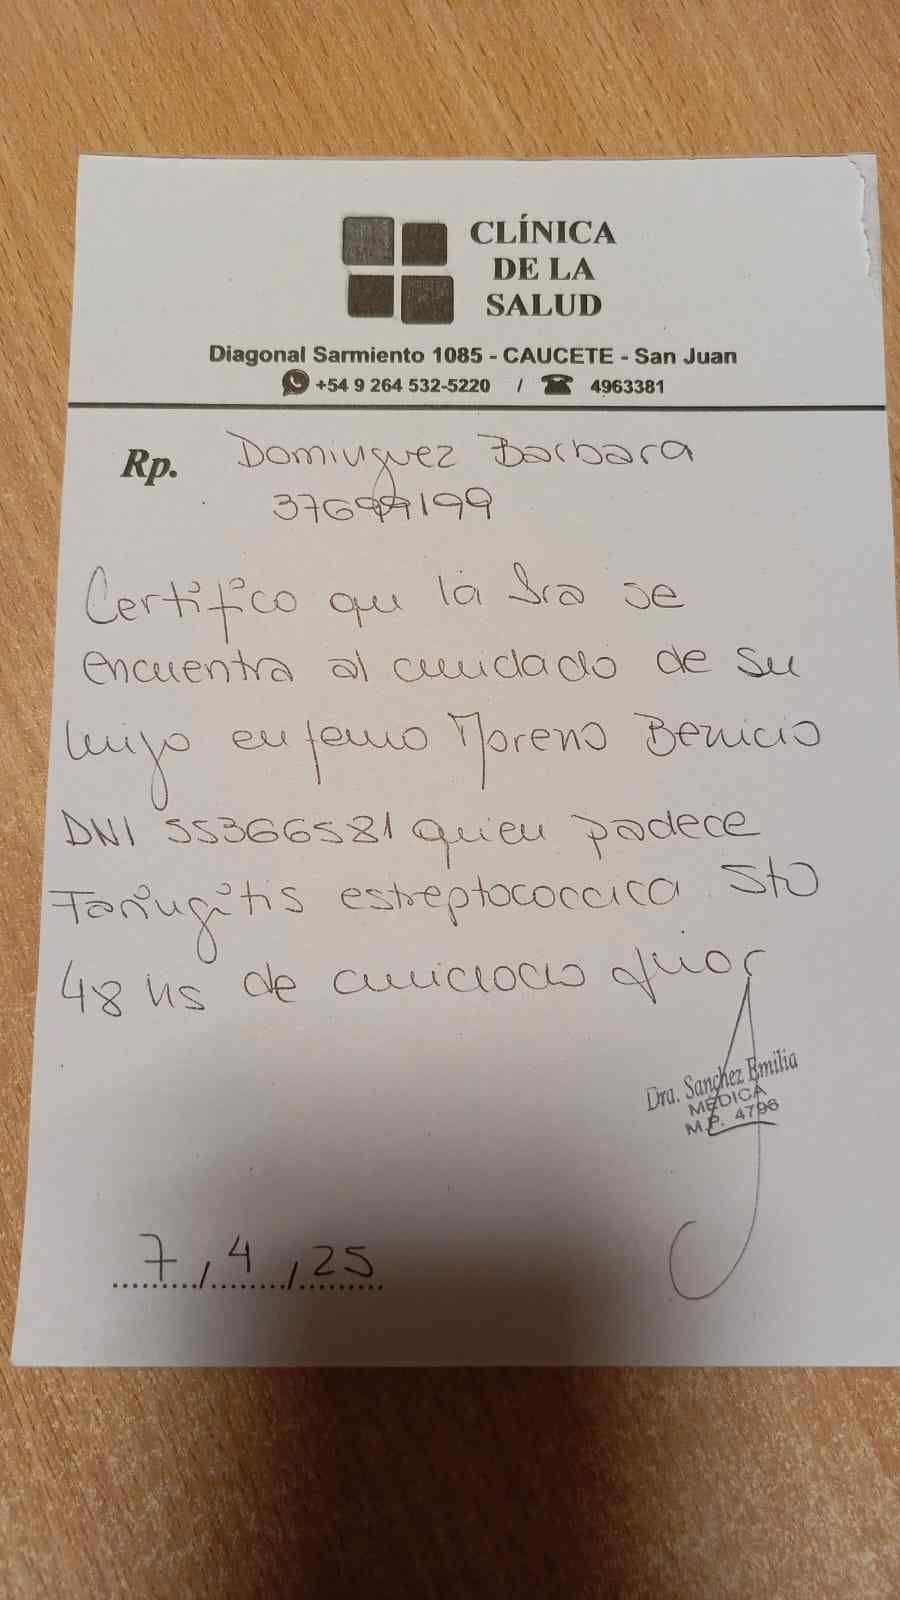 CLÍNICA
DE LA
SALUD
Diagonal Sarmiento 1085 - CAUCETE - San Juan
+54 9 264 532-5220 / 4963381
Rp. Dominguez Barbara
37699199
Certifico que la Sra se
encuentra al cuidado de su
hijo enfermo Moreno Benicio
DNI 55366581 quien padece
Faringitis estreptococcica. Sto
48 hs de cuidado
Dra. Sanchez Emilia
MÉDICA
M.P. 4796
7, 4, 25